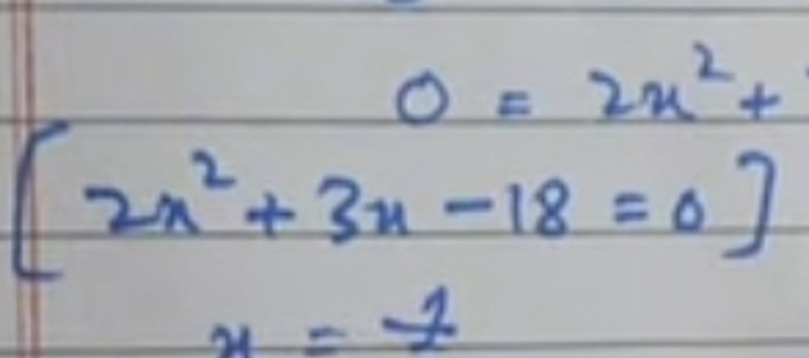 0 = 2x² +
[ 2x² + 3x - 18 = 0 ]
x =